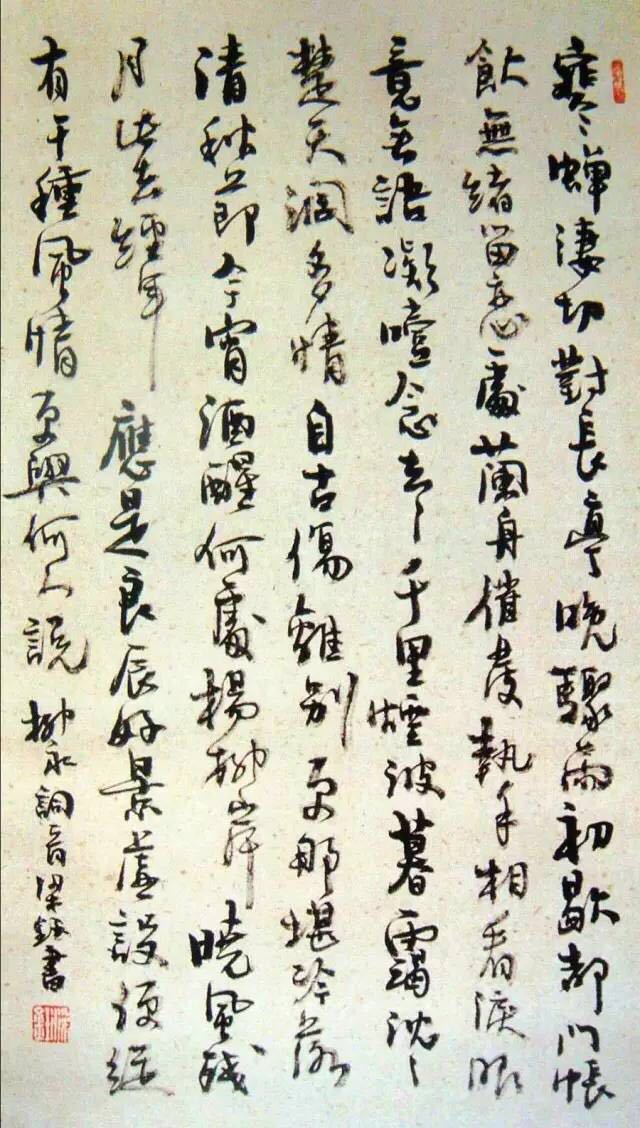 寒蟬淒切對長亭晚驟雨初歇都門帳
飲無緒留戀處蘭舟催發執手相看淚眼
竟無語凝噎念去〻千里煙波暮靄沈〻
楚天闊多情自古傷離別更那堪冷落
清秋節今宵酒醒何處楊柳岸曉風殘
月此去經年應是良辰好景虛設便縱
有千種風情更與何人說
柳永詞 書